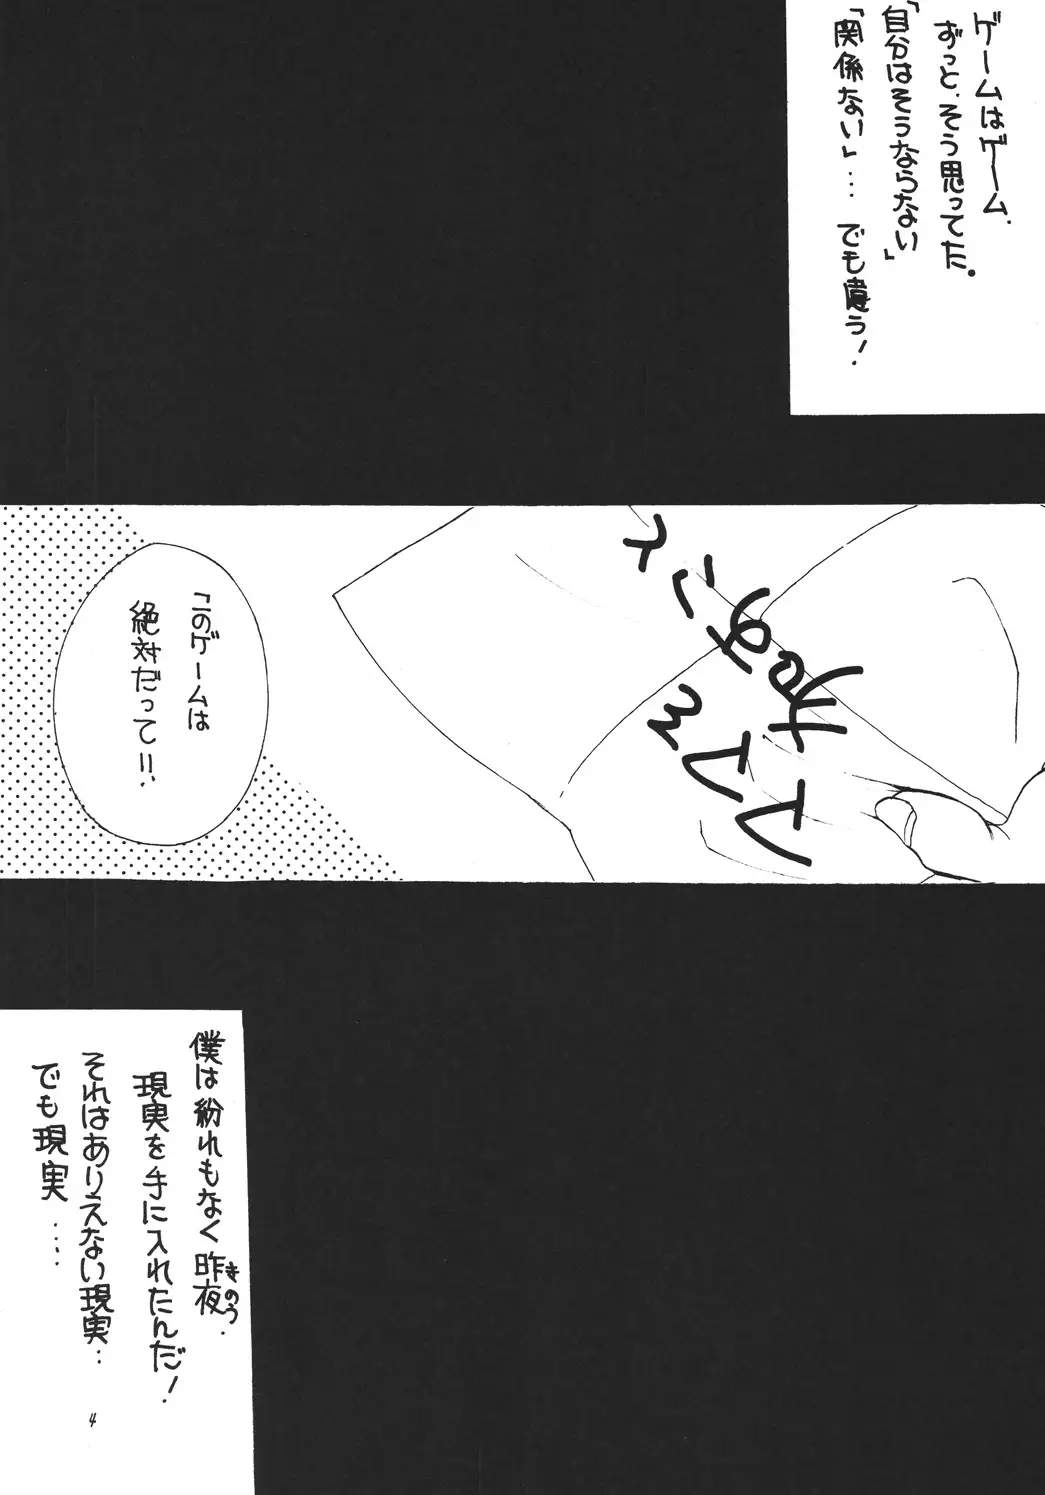 ゲームはゲーム.
ずっと、そう思ってた。
「自分はそうならない」
「関係ない」… でも違う!
「このゲームは
絶対だって!!.
僕は紛れもなく昨夜.
きのう
現実を手に入れたんだ!
それはありえない現実…
でも現実….
4